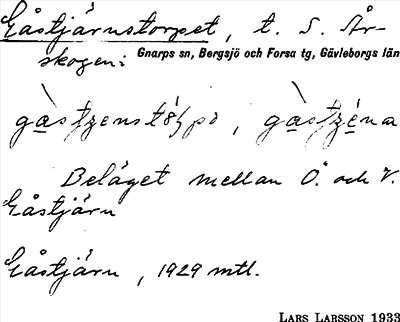 Gåstjärnstorpet, t. S. År-
skogen:
Gnarps sn, Bergsjö och Forsa tg, Gävleborgs län
Beläget mellan Ö. och V.
Gåstjärn
Gåstjärn, 1929 mtl.
LARS LARSSON 1933